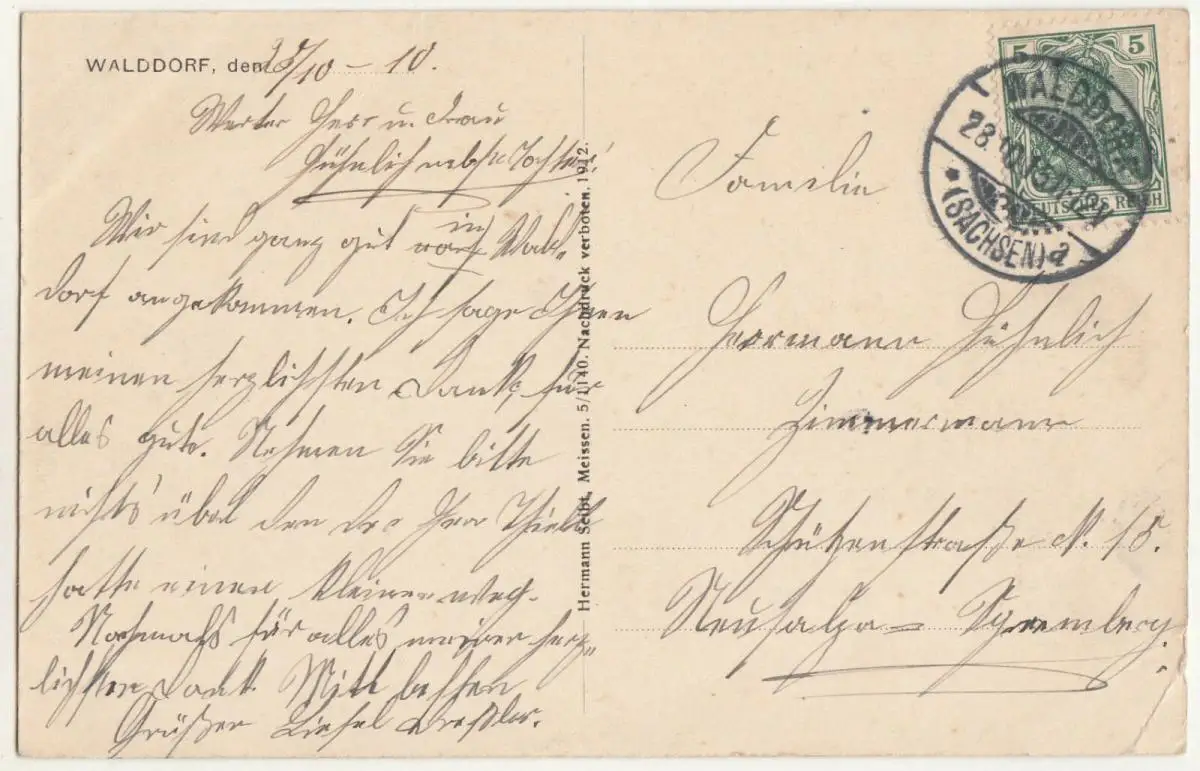 WALDDORF, den 28/10 – 10.
Werter Herr u. Frau
Hühnlich nebst Tochter!
Wir sind ganz gut in Wald-
dorf angekommen. Ich sage Ihnen
meinen herzlichsten Dank für
alles gute. Nehmen Sie bitte
nichts übel den der Herr
hatte einen kleinen weg.
Nochmals für alles meinen herz-
lichsten Dank. Mit besten
Grüßen Liesel Dressler.
Hermann Seibt, Meissen. 5/1140. Nachdruck verboten. 1912.
5 5
DEUTSCHES REICH
WALDDORF
28.10.13.
* (SACHSEN) a
Familie
Hermann Hühnlich
Zimmermann
Schützenstraße N. 15.
Neusalza = Spremberg.